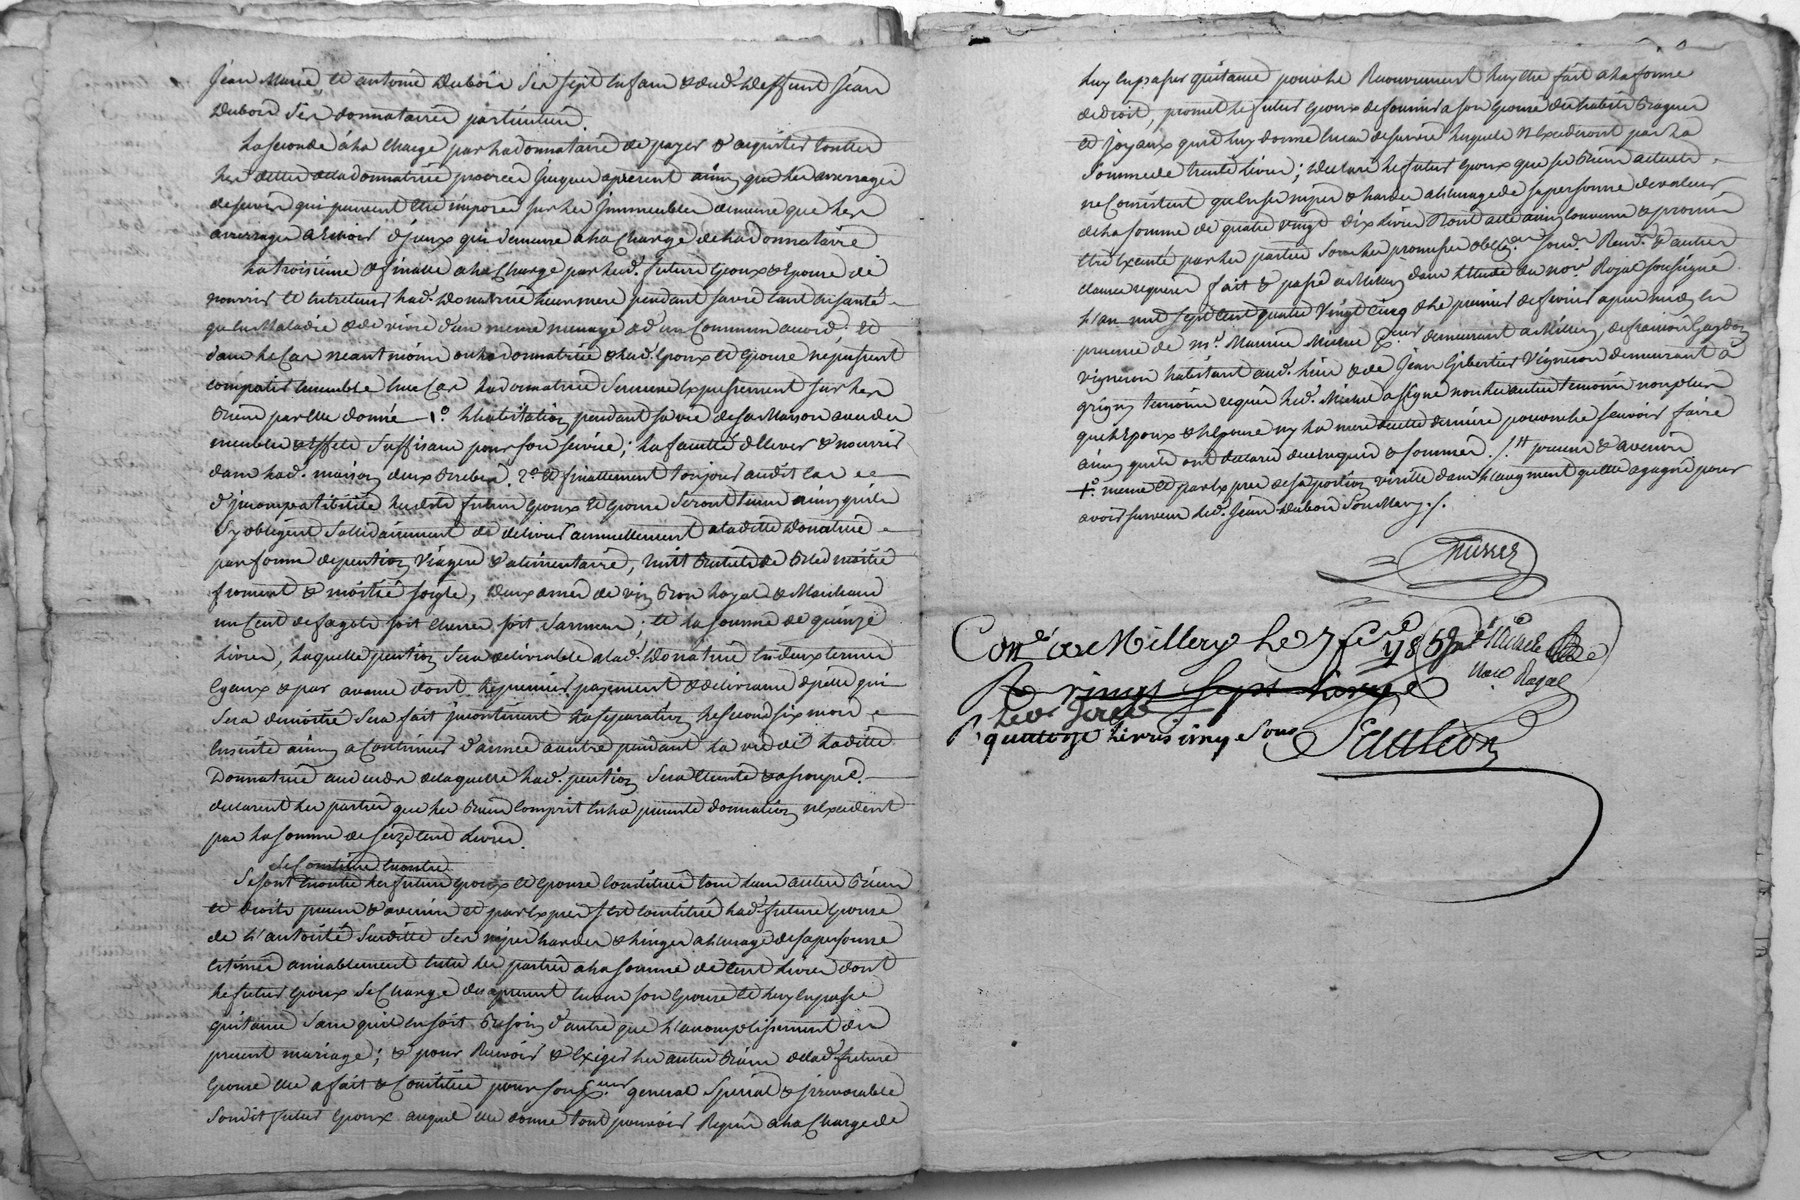 Jean Marie, et antoine Dubois ses sept enfans & dud. deffunt Jean
Dubois ses donnataires particuliers.
La seconde á la charge par la donnataire de payer & acquitter touttes
les dettes de la donnatrice jusques apresent ainsy que les arrerages
de servis qui peuvent etre imposés sur les Immeubles demeure que les
arrerages a Echoir d'Iceux qui demeure a la Charge de la donnataire
La troisieme & finalle a la Charge par lesd. futurs Epoux & Epouse de
nourrir et entretenir lad. Donatrice leur mere pendant sa vie tant en santé
qu'en Maladie & de vivre d'un meme menage & d'un Commun accord, et
dans le Cas neantmoins ou la donnatrice & lesd. Epoux et Epouse ne pussent
compatir ensemble en ce Cas la donnatrice se reserve Expressement sur les
Biens par Elle donné 1.º l'habitation pendant sa vie de sa Maison avec des
meubles & Effets suffisans pour son service; la faculté d'Elever & nourrir
dans lad. maison deux Brebis. 2º Et finallement toujours audit cas
d'Incompatibilité lesdits futurs Epoux et Epouse seront tenus ainsy qu'ils
s'y obligent sollidairement de delivrer annuellement a laditte Donatrice
par forme de pention viagere & alimentaire, huit Bichets de Bled moitié
froment & moitié soigle, deux anées de vin Bon loyal & Marchand
un Cent de fagots soit chesne soit sarment; et la somme de quinze
livres, laquelle pention sera delivrable a lad. Donatrice en deux termes
Egaux & par avance dont le premier payement & delivrance d'Icelle qui
sera de moitié sera fait Incontinent la separation, le second six mois
Ensuite ainsy a Continuer d'année a autre pendant la vie de laditte
Donnatrice au deces de laquelle lad. pention sera Eteinte & assoupie.
declarent les parties que les Biens Compris en la presente donnation n'Excedent
pas la somme de seize cent Livres.
Se sont Encore les futurs Epoux et Epouse Constitués tous leurs autres Biens
et droits presens & avenir et par Exprès s'est Constitué lad. future Epouse
de l'autorité susditte ses nipes hardes & linges a l'usage de sa personne
Estimés amiablement Entre les parties a la somme de Cent Livres dont
le futur Epoux se Charge des apresent Envers son Epouse et luy En passe
quitance sans qu'il en soit Besoin d'autre que l'accomplissement du
present mariage; & pour Recevoir & Exiger les autres Biens de lad. future
Epouse elle a fait & Constitué pour son p.eur general special & irrevocable
sondit futur Epoux auquel elle donne tout pouvoir Requis a la Charge de
luy En passer quitance pour le Recouvrement luy Etre fait a la forme
de droit, promet le futur Epoux de fournir a son Epouse des habits Bagues
et Joyaux qu'il luy donne En cas de survie lesquels n'Excederont pas la
somme de trente Livres; declare le futur Epoux que ses Biens actuels
ne Consistent qu'en ses nipes & hardes a l'usage de sa personne de valeur
de la somme de quatre vingt dix Livres Dont acte ainsy Convenu & promis
Etre Executé par les parties sous les promesses oblig.ons soum.s Renon.s & autres
clauses requises fait & passé a Millery dans l'Etude du no.re Royal soussigné
L'an mil sept cent quatre vingt cinq & le premier de fevrier apres midy En
presence de m.r Maurice Michel p.eur demeurant a Millery, de francois Gaydon
vigneron habitant aud. lieu & de Jean Gibertier Vigneron demeurant a
grigny temoins requis led. Michel a signé non les autres temoins non plus
que l'Epoux & l'Epouse ny la mere d'icelle derniere pour ne le scavoir faire
ainsy qu'ils ont declaré de ce enquis & sommés ./. presens & avenir
+º meme et par Exprès de sa portion virille dans l'augment qu'elle a gagné pour
avoir survecu led. Jean Dubois son Mary ./.
Con.lé a Millery Le 7 f.er 1785
quatorze livres cinq Sous